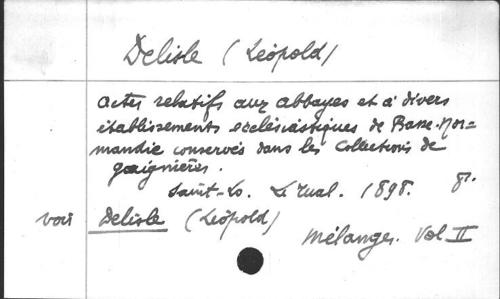 Delisle (Léopold)
actes relatifs aux abbayes et à divers
établissements ecclésiastiques de Basse-Nor=
mandie conservés dans les Collections de
gaignières.
Saint-Lo. Le Tual. 1898. 8º.
voir Delisle (Léopold)
Mélanges. Vol II